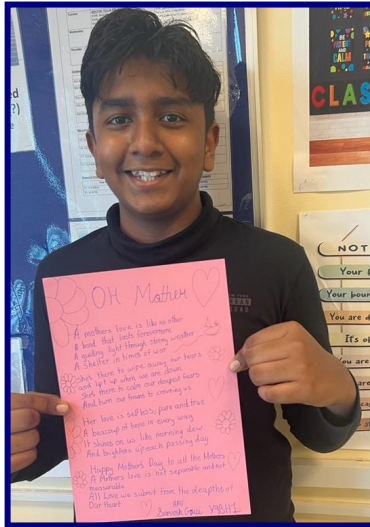 OH Mother
A mothers love is like no other
A bond that lasts forevermore
A guiding light through stormy weather
A shelter in times of war
Shes there to wipe away our tears
and lift up when we are down
Shes there to calm our deepest fears
And turn our frowns to crowning us
Her love is selfless, pure and true
A beacsup of hope in every way
It shines on us like morning dew
And brightens up each passing day
Happy Mother's Day to all the Mothers
A Mothers love is not separable and not
measurable
All Love we submit from the deapths of
Our Heart
BAE
CLAS
CALM
NOT
Your
Your boun
You are d
It's o
You are